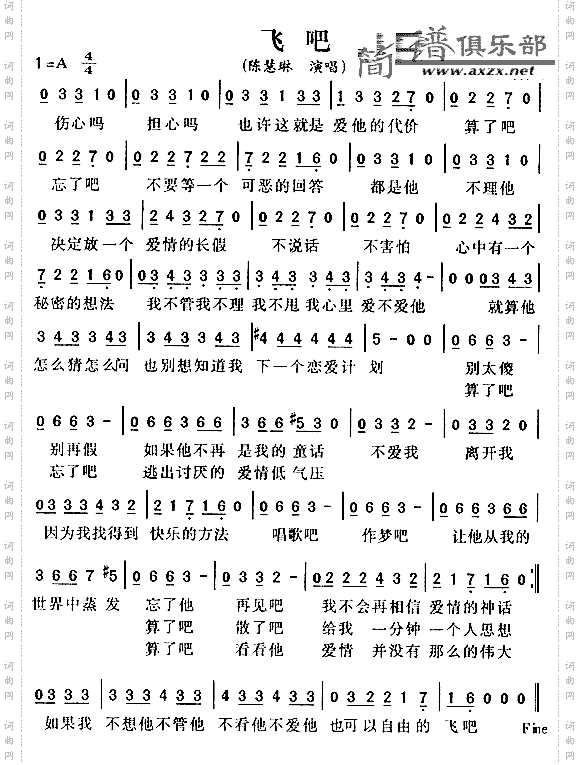 飞吧
简谱俱乐部
www.axzx.net
1=A 4/4
(陈慧琳 演唱)
0 3 3 1 0 | 0 3 3 1 0 | 0 3 3 3 1 0 | 1 3 3 2 7 0 | 0 2 2 7 0 |
伤心吗 担心吗 也许这就是 爱他的代价 算了吧
0 2 2 7 0 | 0 2 2 7 2 2 | 7 2 2 1 6 0 | 0 3 3 1 0 | 0 3 3 1 0 |
忘了吧 不要等一个 可恶的回答 都是他 不理他
0 3 3 1 3 3 | 2 4 3 2 7 0 | 0 2 2 7 0 | 0 2 2 7 0 | 0 2 2 4 3 2 |
决定放一个 爱情的长假 不说话 不害怕 心中有一个
7 2 2 1 6 0 | 0 3 4 3 3 4 3 | 3 4 3 3 4 3 | 3 4 3 3 4 - | 0 0 0 3 4 3 |
秘密的想法 我不管我不理 我不甩我心里 爱不爱他 就算他
3 4 3 3 4 3 | 3 4 3 3 4 3 3 | #4 4 4 4 4 4 | 5 - 0 0 | 0 6 6 3 - |
怎么猜怎么问 也别想知道我 下一个恋爱计 划 别太傻
算了吧
0 6 6 3 - | 0 6 6 3 6 6 | 3 6 6 #5 3 0 | 0 3 3 2 - | 0 3 3 2 0 |
别再假 如果他不再 是我的 童话 不爱我 离开我
忘了吧 逃出讨厌的 爱情低 气压
0 3 3 3 4 3 2 | 2 1 7 1 6 0 | 0 6 6 3 - | 0 6 6 3 - | 0 6 6 3 6 6 |
因为我找得到 快乐的方法 唱歌吧 作梦吧 让他从我的
3 6 6 7 #5 | 0 6 6 3 - | 0 3 3 2 - | 0 2 2 2 4 3 2 | 2 1 7 1 6 0 :||
世界中蒸 发 忘了他 再见吧 我不会再相信 爱情的神话
算了吧 散了吧 给我 一分钟 一个人思想
算了吧 看看他 爱情 并没有 那么的伟大
0 3 3 3 | 3 4 3 3 4 3 | 4 3 3 4 3 3 | 0 3 2 2 1 7 | 1 6 0 0 0 ||
如果我 不想他不管他 不看他不爱他 也可以自由的 飞吧 Fine